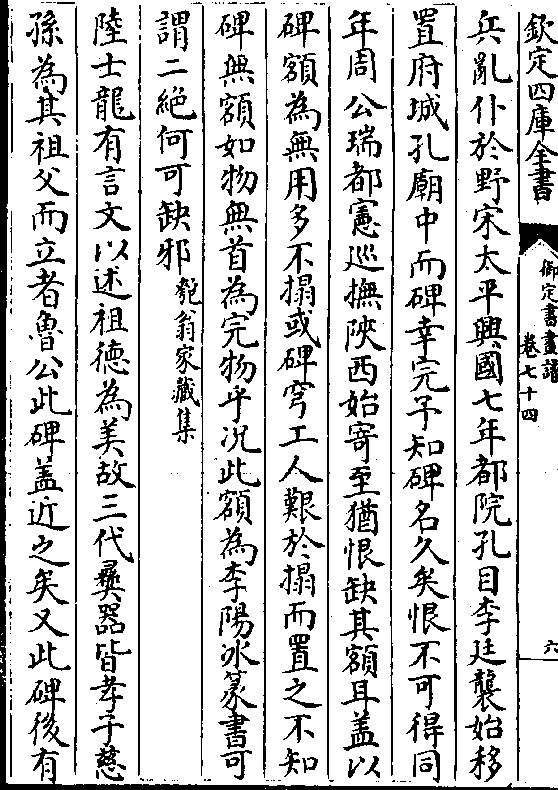 欽定四庫全書
御定書畫譜
卷七十四
六
兵亂仆於野宋太平興國七年都院孔目李廷襲始移
置府城孔廟中而碑幸完予知碑名久矣恨不可得同
年周公瑞都憲巡撫陝西始寄至猶恨缺其額耳盖以
碑額為無用多不搨或碑穹工人艱於搨而置之不知
碑無額如物無首為完物乎况此額為李陽冰篆書可
謂二絶何可缺邪匏翁家藏集
陸士龍有言文以述祖德為美故三代彛器皆孝子慈
孫為其祖父而立者魯公此碑盖近之矣又此碑後有